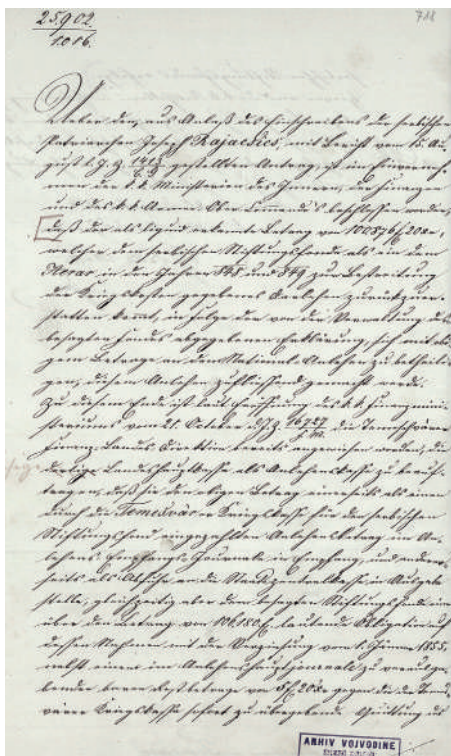 25902.
1016.
718
Ueber den, aus Anlaß des Einschreitens des serbischen
Patriarchen Joseph Rajacsics, mit Bericht vom 15. Au-
gust l. J. Z. gestellten Antrag, ist im Einverneh-
men der k. k. Ministerien des Inneren, der Finanzen
und des k. k. Armee-Ober-Commando's beschlossen worden,
daß der als liquid erkannte Betrag von 100876 f 20 xr,
welcher dem serbischen Stiftungsfonde als ein dem
Aerar in den Jahren 848 und 849 zur Bestreitung
der Kriegskosten gegebenes Darlehen zurückzuer-
statten kommt, in Folge der von der Verwaltung des
besagten Fondes abgegebenen Erklärung, sich mit obi-
gem Betrage an dem National-Anlehen zu betheili-
gen, diesem Anlehen zufließend gemacht werde.
Zu diesem Ende ist laut Eröffnung des k. k. Finanzmini-
steriums vom 21. October d. J. Z. 16727 die Temesvárer
Finanz-Landes-Direktion bereits angewiesen worden, die
dortige Landeshauptkasse als Anlehenskasse zu beauf-
tragen, daß sie den obigen Betrag einerseits als einen
durch die Temesvárer Kriegskasse für den serbischen
Stiftungsfond eingezahlten Anlehensbetrag im An-
lehens-Empfangs-Journale in Empfang, und anderer-
seits als Abfuhr an die Staatszentralkasse in Ausgabe
stelle, gleichzeitig aber dem besagten Stiftungsfonde eine
über den Betrag von 106180 f. lautende Obligation auf
dessen Nahmen mit der Verzinsung vom 1. Jänner 1855.
nebst einem im Anlehenshauptjournale zu verausga-
benden baren Restbetrage von 5 f 20 xr gegen die der Temes-
várer Kriegskasse sofort zu übergebende Quittung des
ARHIV VOJVODINE